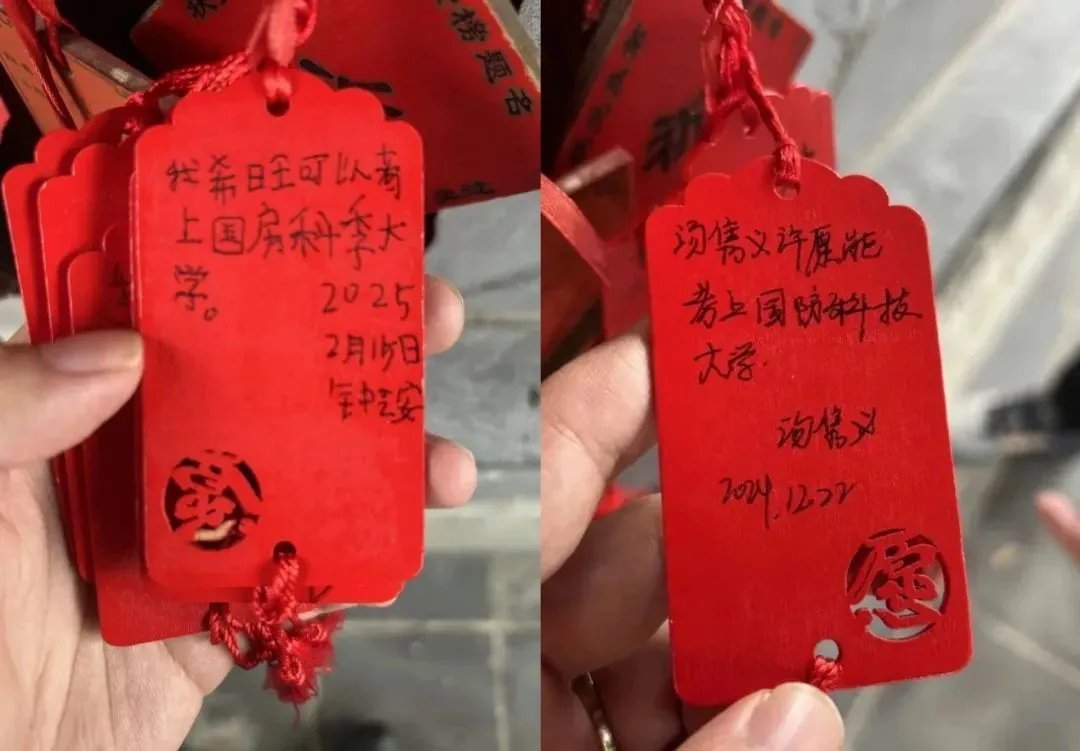 我希旺可以考
上国房科季大
学。
2025
2月15日
钟芸安
汤隽义许愿能
考上国防科技
大学
汤隽义
2024.12.22
愿
榜题名